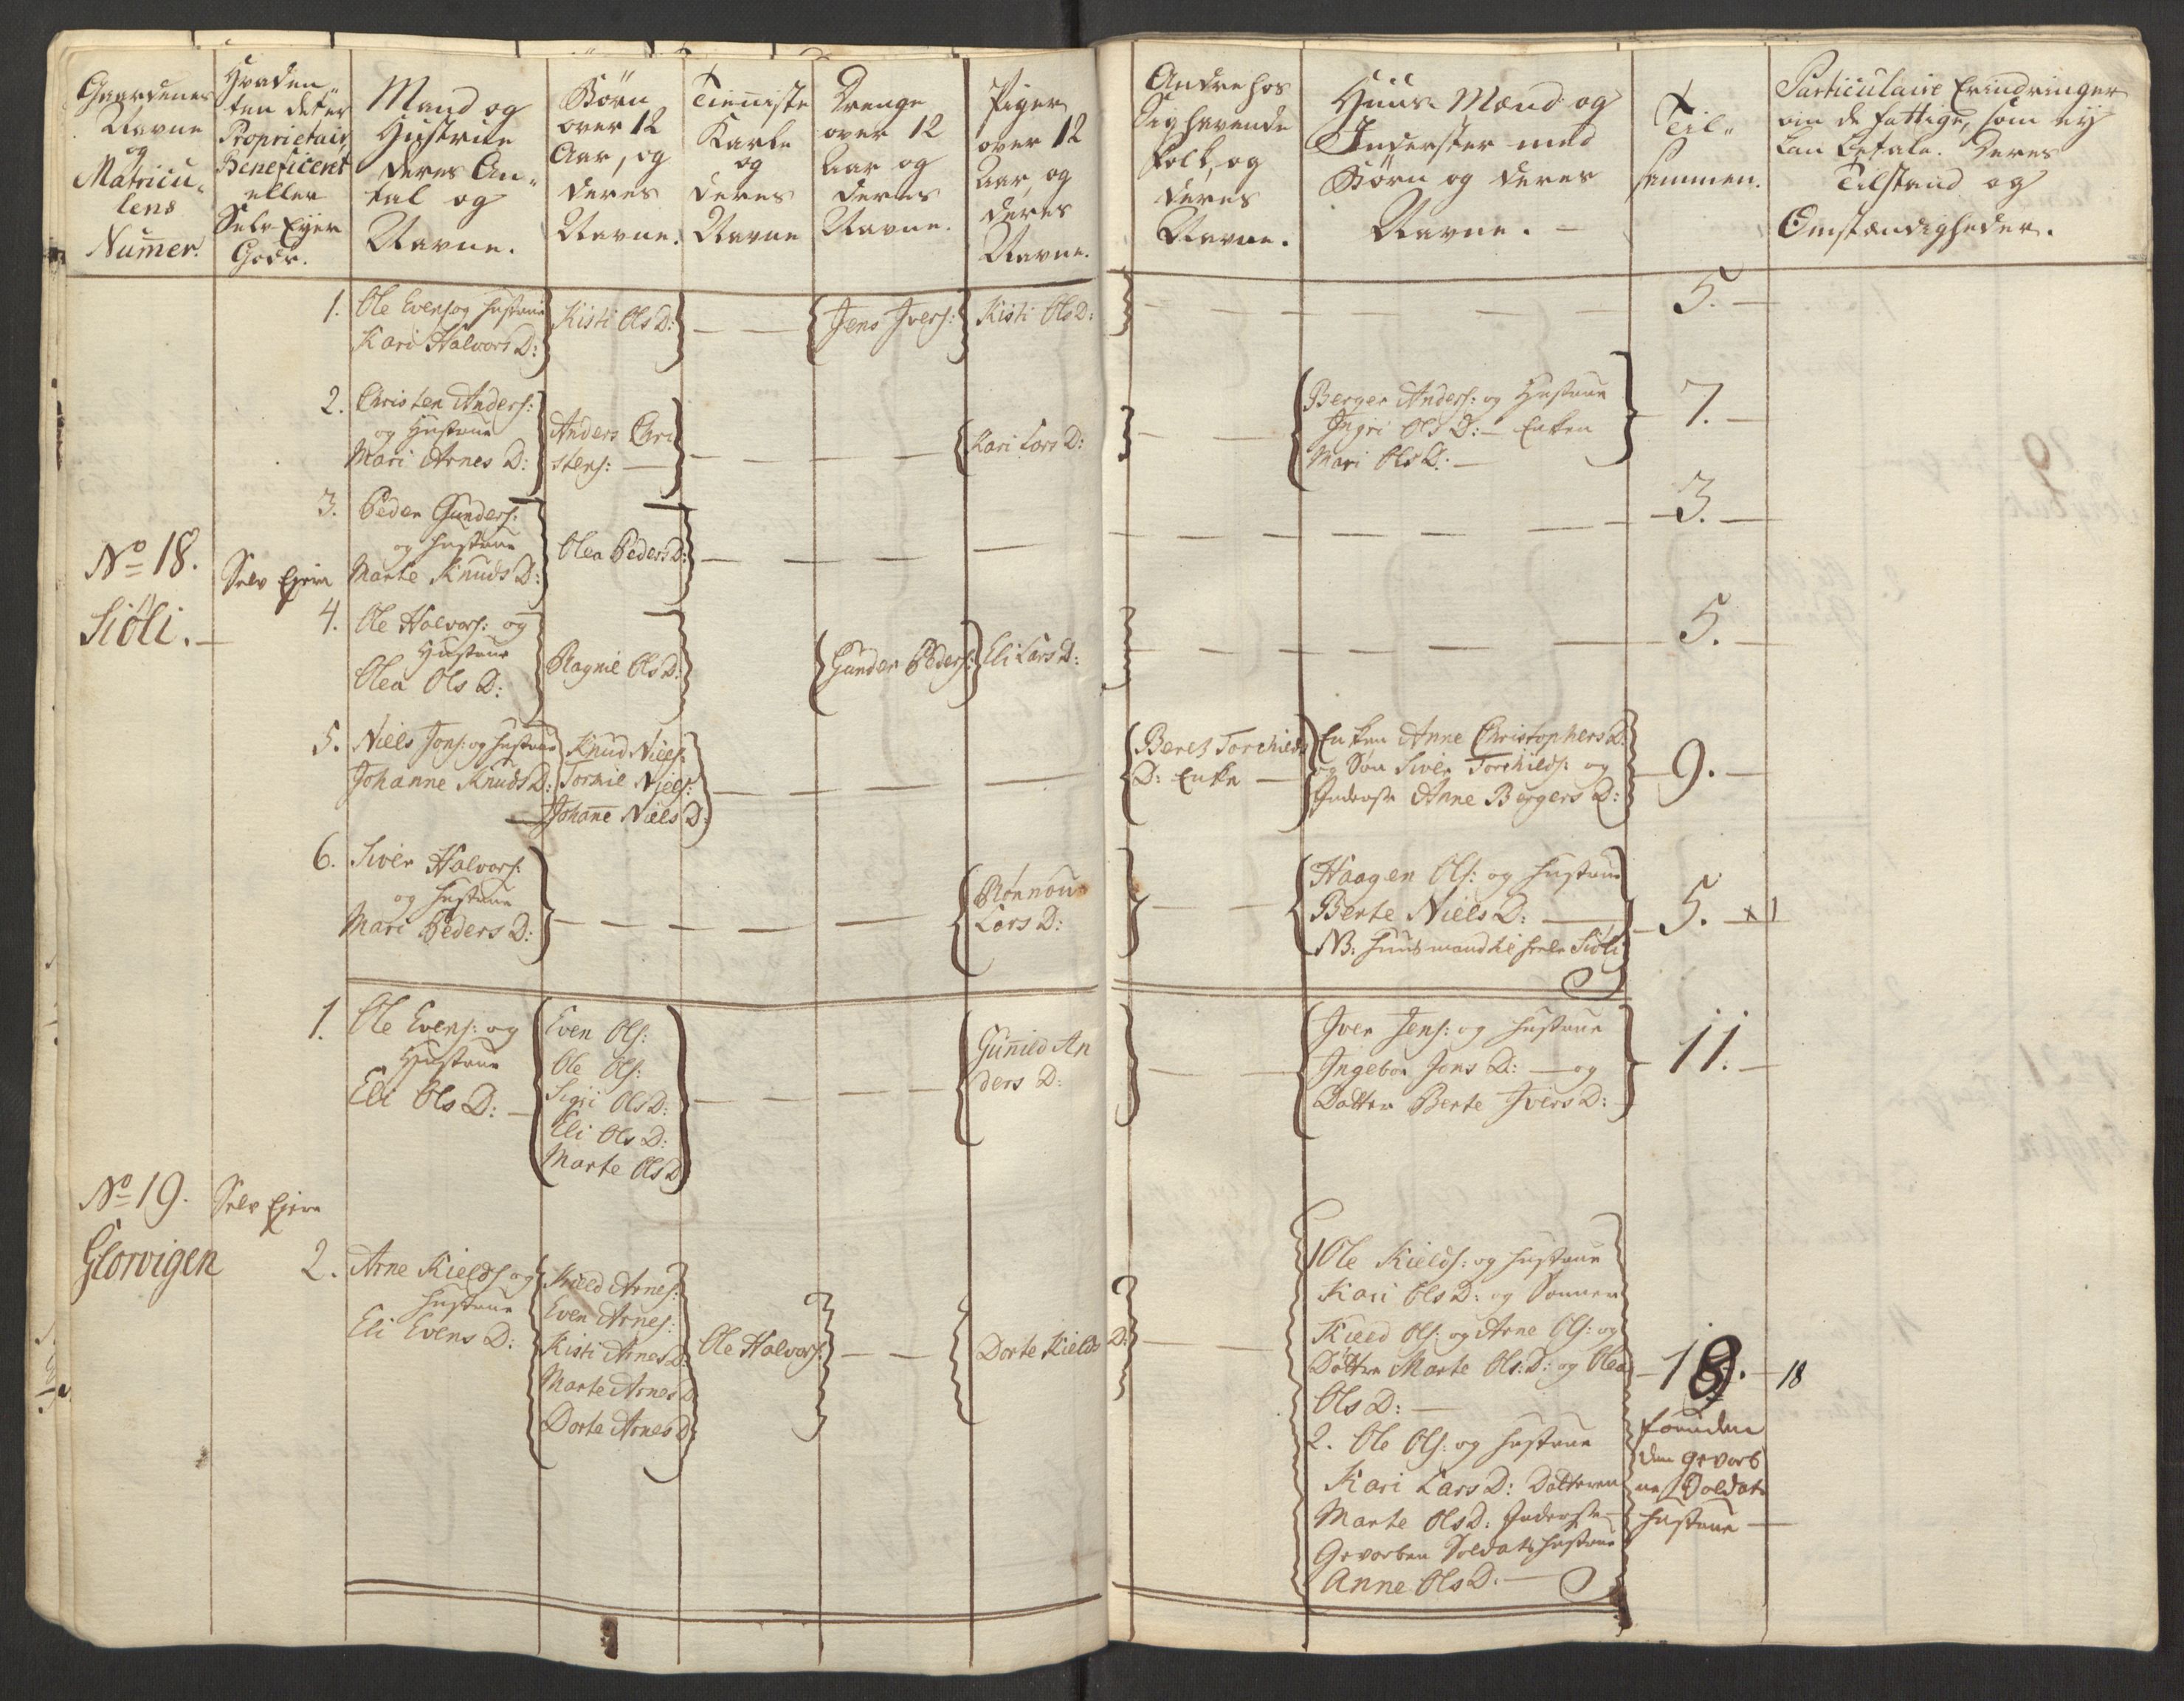 Gaardenes
Navne
og
Matricu-
lens
Numer.
Hvaden-
ten det er
Proprietair
Beneficeret
eller
Selv Eyer
Gods.
Mand og
Hustrue
deres An-
tal og
Navne.
Börn
over 12
Aar, og
deres
Navne.
Tieniste
Karle
og
deres
Navne
Drenge
over 12
Aar og
deres
Navne.
Piger
over 12
Aar, og
deres
Navne.
Andre hos
Sig havende
Folk, og
deres
Navne.
Huus-Mænd og
Inderster med
Börn og deres
Navne.
Til-
sammen.
Particulaire Erindringer
om de fattige, som ey
kan betale. Deres
Tilstand og
Omstændigheder.
No 18.
Siöli.
Selv Ejere
1. Ole Evens: og Hustrue
Kari Halvors D:
Kisti Ols D:
Jens Ivers:
Kisti Ols D:
5.
2. Christen Anders:
og Hustrue
Mari Arnes D:
Anders Chri
stens:
Kari Lars D:
Berger Anders: og Hustrue
Ingri Ols D: Enken
Mari Ols D:
7.
3. Peder Gunders:
og Hustrue
Marte Knuds D:
Olea Peders D:
3.
4. Ole Halvors: og
Hustrue
Olea Ols D:
Ragnil Ols D:
Gunder Peders:
Eli Lars D:
5.
5. Niels Jons: og Hustrue
Johanne Knuds D:
Knud Niels:
Tormil Niels:
Johane Niels D:
Beret Torchilds
D: Enke
Enken Anne Christophers D:
og Søn Siver Torchilds: og
Inderste Anne Bergers D:
9.
6. Siver Halvors:
og Hustrue
Mari Peders D:
Rønnou
Lars D:
Haagen Ols: og Hustrue
Berte Niels D:
NB. Huusmand til heele Siöli
5. x 1
No 19.
Glorvigen
Selv Ejere
1. Ole Evens: og
Hustrue
Eli Ols D:
Even Ols:
Ole Ols:
Sigri Ols D:
Eli Ols D:
Marte Ols D
Guñild An
ders D:
Iver Jens: og Hustrue
Ingebor Jons D: og
Datter Berte Ivers D:
11.
2. Arne Kields: og
Hustrue
Eli Evens D:
Kield Arnes:
Even Arnes:
Kisti Arnes D:
Marte Arnes D
Dorte Arnes D:
Ole Halvors:
Dorte Kields D:
1 Ole Kields: og Hustrue
Kari Ols D: og Sønner
Kield Ols: og Arne Ols: og
Døttre Marte Ols D: og Olea
Ols D:
2. Ole Ols: og Hustrue
Kari Lars D: Datteren
Marte Ols D: Inderste
Gevorben Soldats Hustrue
Anne Ols D.
18. 18
foruden
den gevorb
ne Soldats
Hustrue